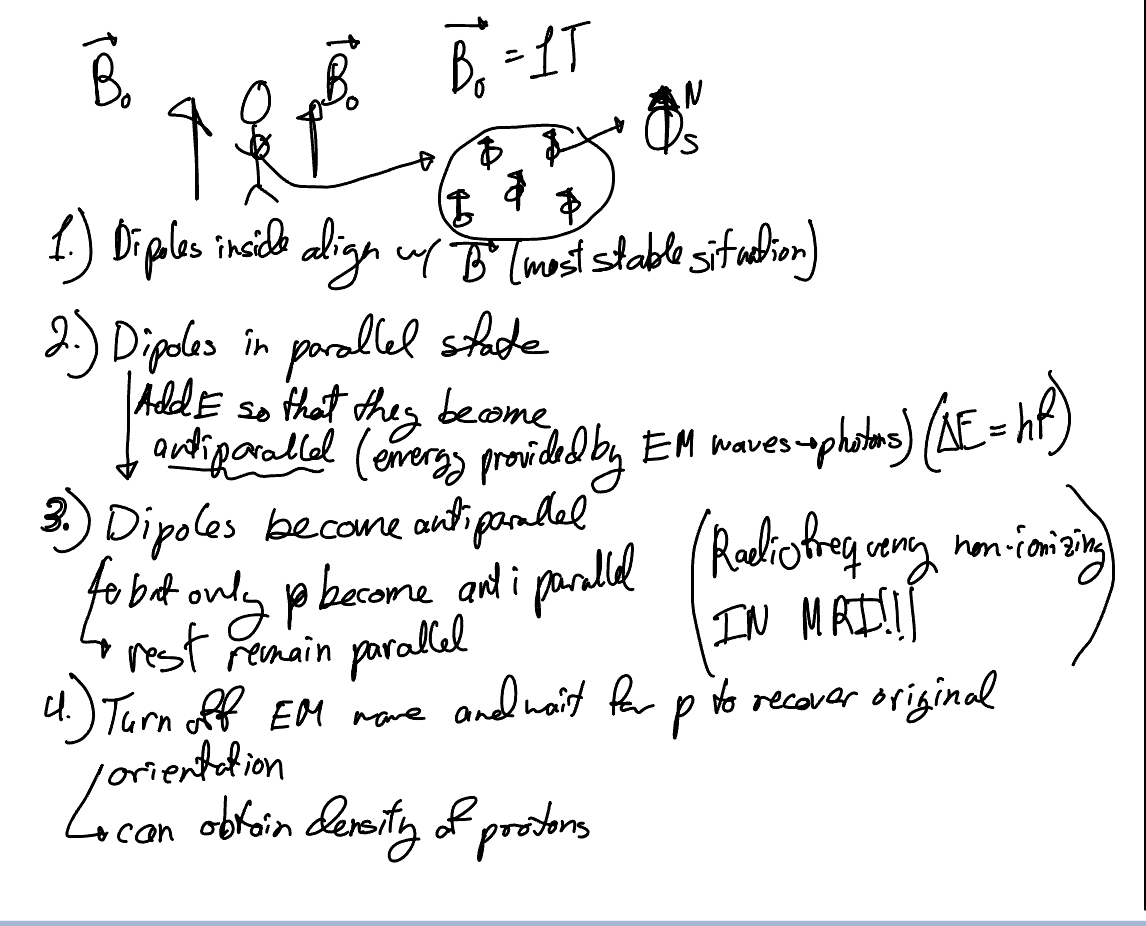 B₀ B₀ B₀ = 1T
N
S
1.) Dipoles inside align w/ B (most stable situation)
2.) Dipoles in parallel state
Add E so that they become
antiparallel (energy provided by EM waves→photons) (ΔE = hf)
3.) Dipoles become antiparallel
but only p become anti parallel
rest remain parallel
(Radiofrequency non-ionizing
IN MRI!!!)
4.) Turn off EM wave and wait for p to recover original
orientation
can obtain density of protons